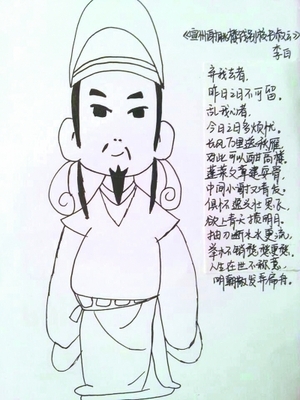 《宣州谢朓楼饯别校书叔云》
李白
弃我去者,
昨日之日不可留。
乱我心者,
今日之日多烦忧。
长风万里送秋雁,
对此可以酣高楼。
蓬莱文章建安骨,
中间小谢又清发。
俱怀逸兴壮思飞,
欲上青天揽明月。
抽刀断水水更流,
举杯销愁愁更愁。
人生在世不称意,
明朝散发弄扁舟。